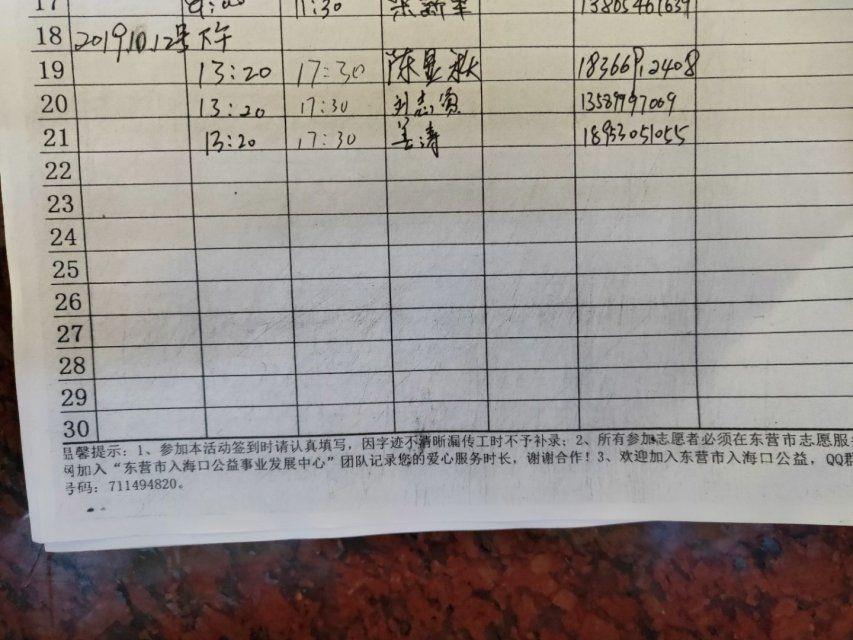 17 9:00 11:30 13805461639
18 2019.10.12号下午
19 13:20 17:30 陈显秋
20 13:20 17:30 刘志 13589997009
21 13:20 17:30 姜涛 18953051055
22
23
24
25
26
27
28
29
30
温馨提示：1、参加本活动签到时请认真填写，因字迹不清晰漏传工时不予补录；2、所有参加志愿者必须在东营市志愿服
网加入“东营市入海口公益事业发展中心”团队记录您的爱心服务时长，谢谢合作！3、欢迎加入东营市入海口公益，QQ群
号码：711494820。